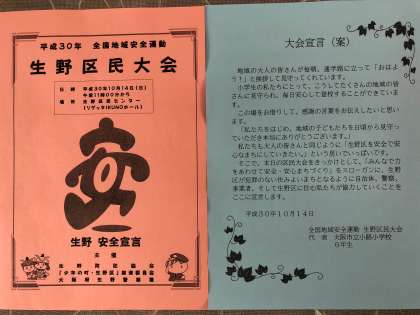 平成30年 全国地域安全運動
生野区民大会
日時 平成30年10月14日(日)
午前11時00分から
場所 生野区民センター
(リゲッタIKUNOホール)
安
生野 安全宣言
主催
生野防犯協会
「少年の町・生野区」推進委員会
大阪府生野警察署
大会宣言(案)
地域の大人の皆さんが毎朝、通学路に立って「おはよう!」と挨拶して見守ってくれています。
小学生の私たちにとって、こうしてたくさんの地域の皆さんに見守られ、毎日安心して登校することができています。
この場をお借りして、感謝の言葉をお伝えしたいと思います。
「私たちをはじめ、地域の子どもたちを日頃から見守っていただき本当にありがとうございます。」
私たちも大人の皆さんと同じように「生野区を安全で安心なまちにしていきたい。」という思いでいっぱいです。
そこで、本日の区民大会をきっかけとして、「みんなで力をあわせて安全・安心まちづくり」をスローガンに、生野区が犯罪のない住みよいまちとなるように自治体、警察、事業者、そして生野区に住む私たちが協力していくことをここに宣言します。
平成30年10月14日
全国地域安全運動 生野区民大会
代表 大阪市立小路小学校
6年生